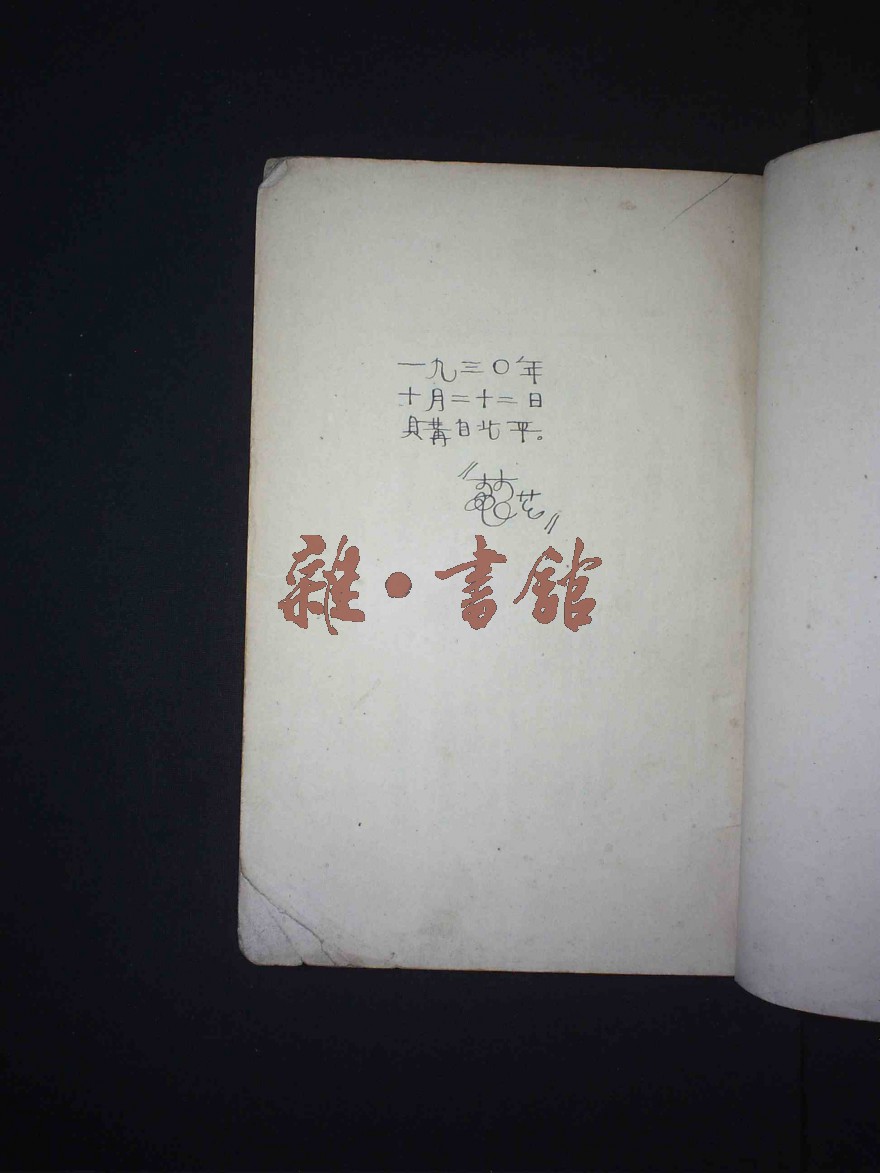 一九三〇年
十月二十二日
購自北平。
雜·書館